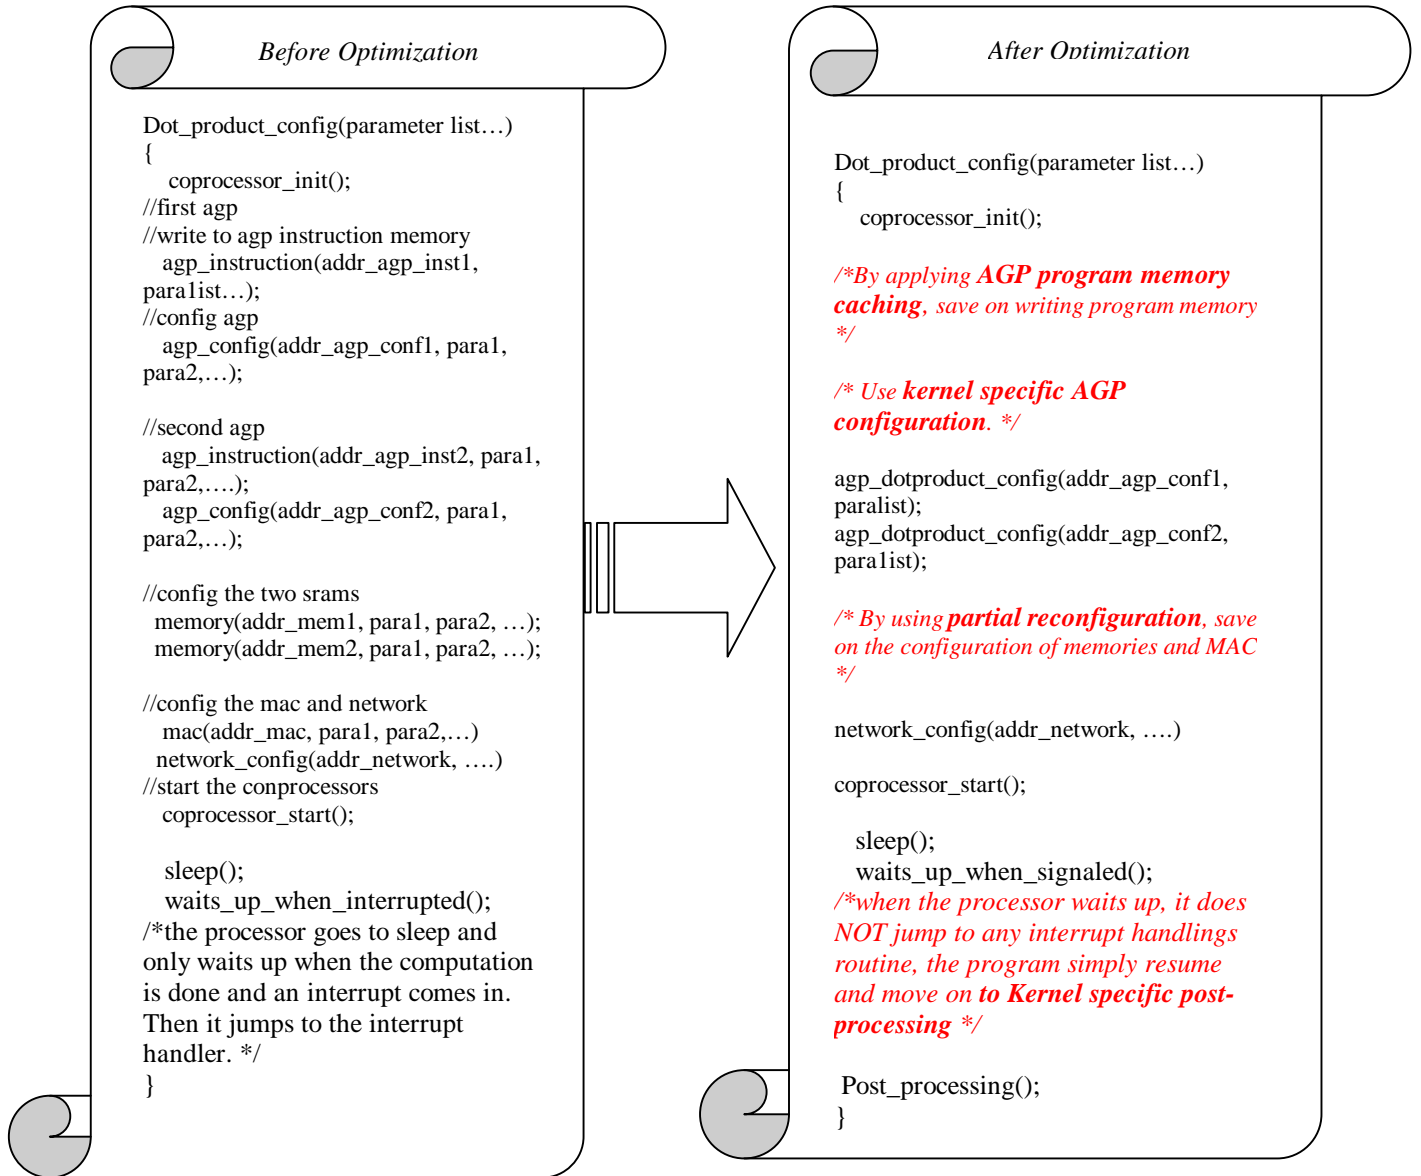 Before Optimization
Dot_product_config(parameter list…)
{
coprocessor_init();
//first agp
//write to agp instruction memory
agp_instruction(addr_agp_inst1,
para1ist…);
//config agp
agp_config(addr_agp_conf1, para1,
para2,…);
//second agp
agp_instruction(addr_agp_inst2, para1,
para2,….);
agp_config(addr_agp_conf2, para1,
para2,…);
//config the two srams
memory(addr_mem1, para1, para2, …);
memory(addr_mem2, para1, para2, …);
//config the mac and network
mac(addr_mac, para1, para2,…)
network_config(addr_network, ….)
//start the conprocessors
coprocessor_start();
sleep();
waits_up_when_interrupted();
/*the processor goes to sleep and
only waits up when the computation
is done and an interrupt comes in.
Then it jumps to the interrupt
handler. */
}
After Optimization
Dot_product_config(parameter list…)
{
coprocessor_init();
/*By applying AGP program memory
caching, save on writing program memory
*/
/* Use kernel specific AGP
configuration. */
agp_dotproduct_config(addr_agp_conf1,
paralist);
agp_dotproduct_config(addr_agp_conf2,
para1ist);
/* By using partial reconfiguration, save
on the configuration of memories and MAC
*/
network_config(addr_network, ….)
coprocessor_start();
sleep();
waits_up_when_signaled();
/*when the processor waits up, it does
NOT jump to any interrupt handlings
routine, the program simply resume
and move on to Kernel specific post-
processing */
Post_processing();
}